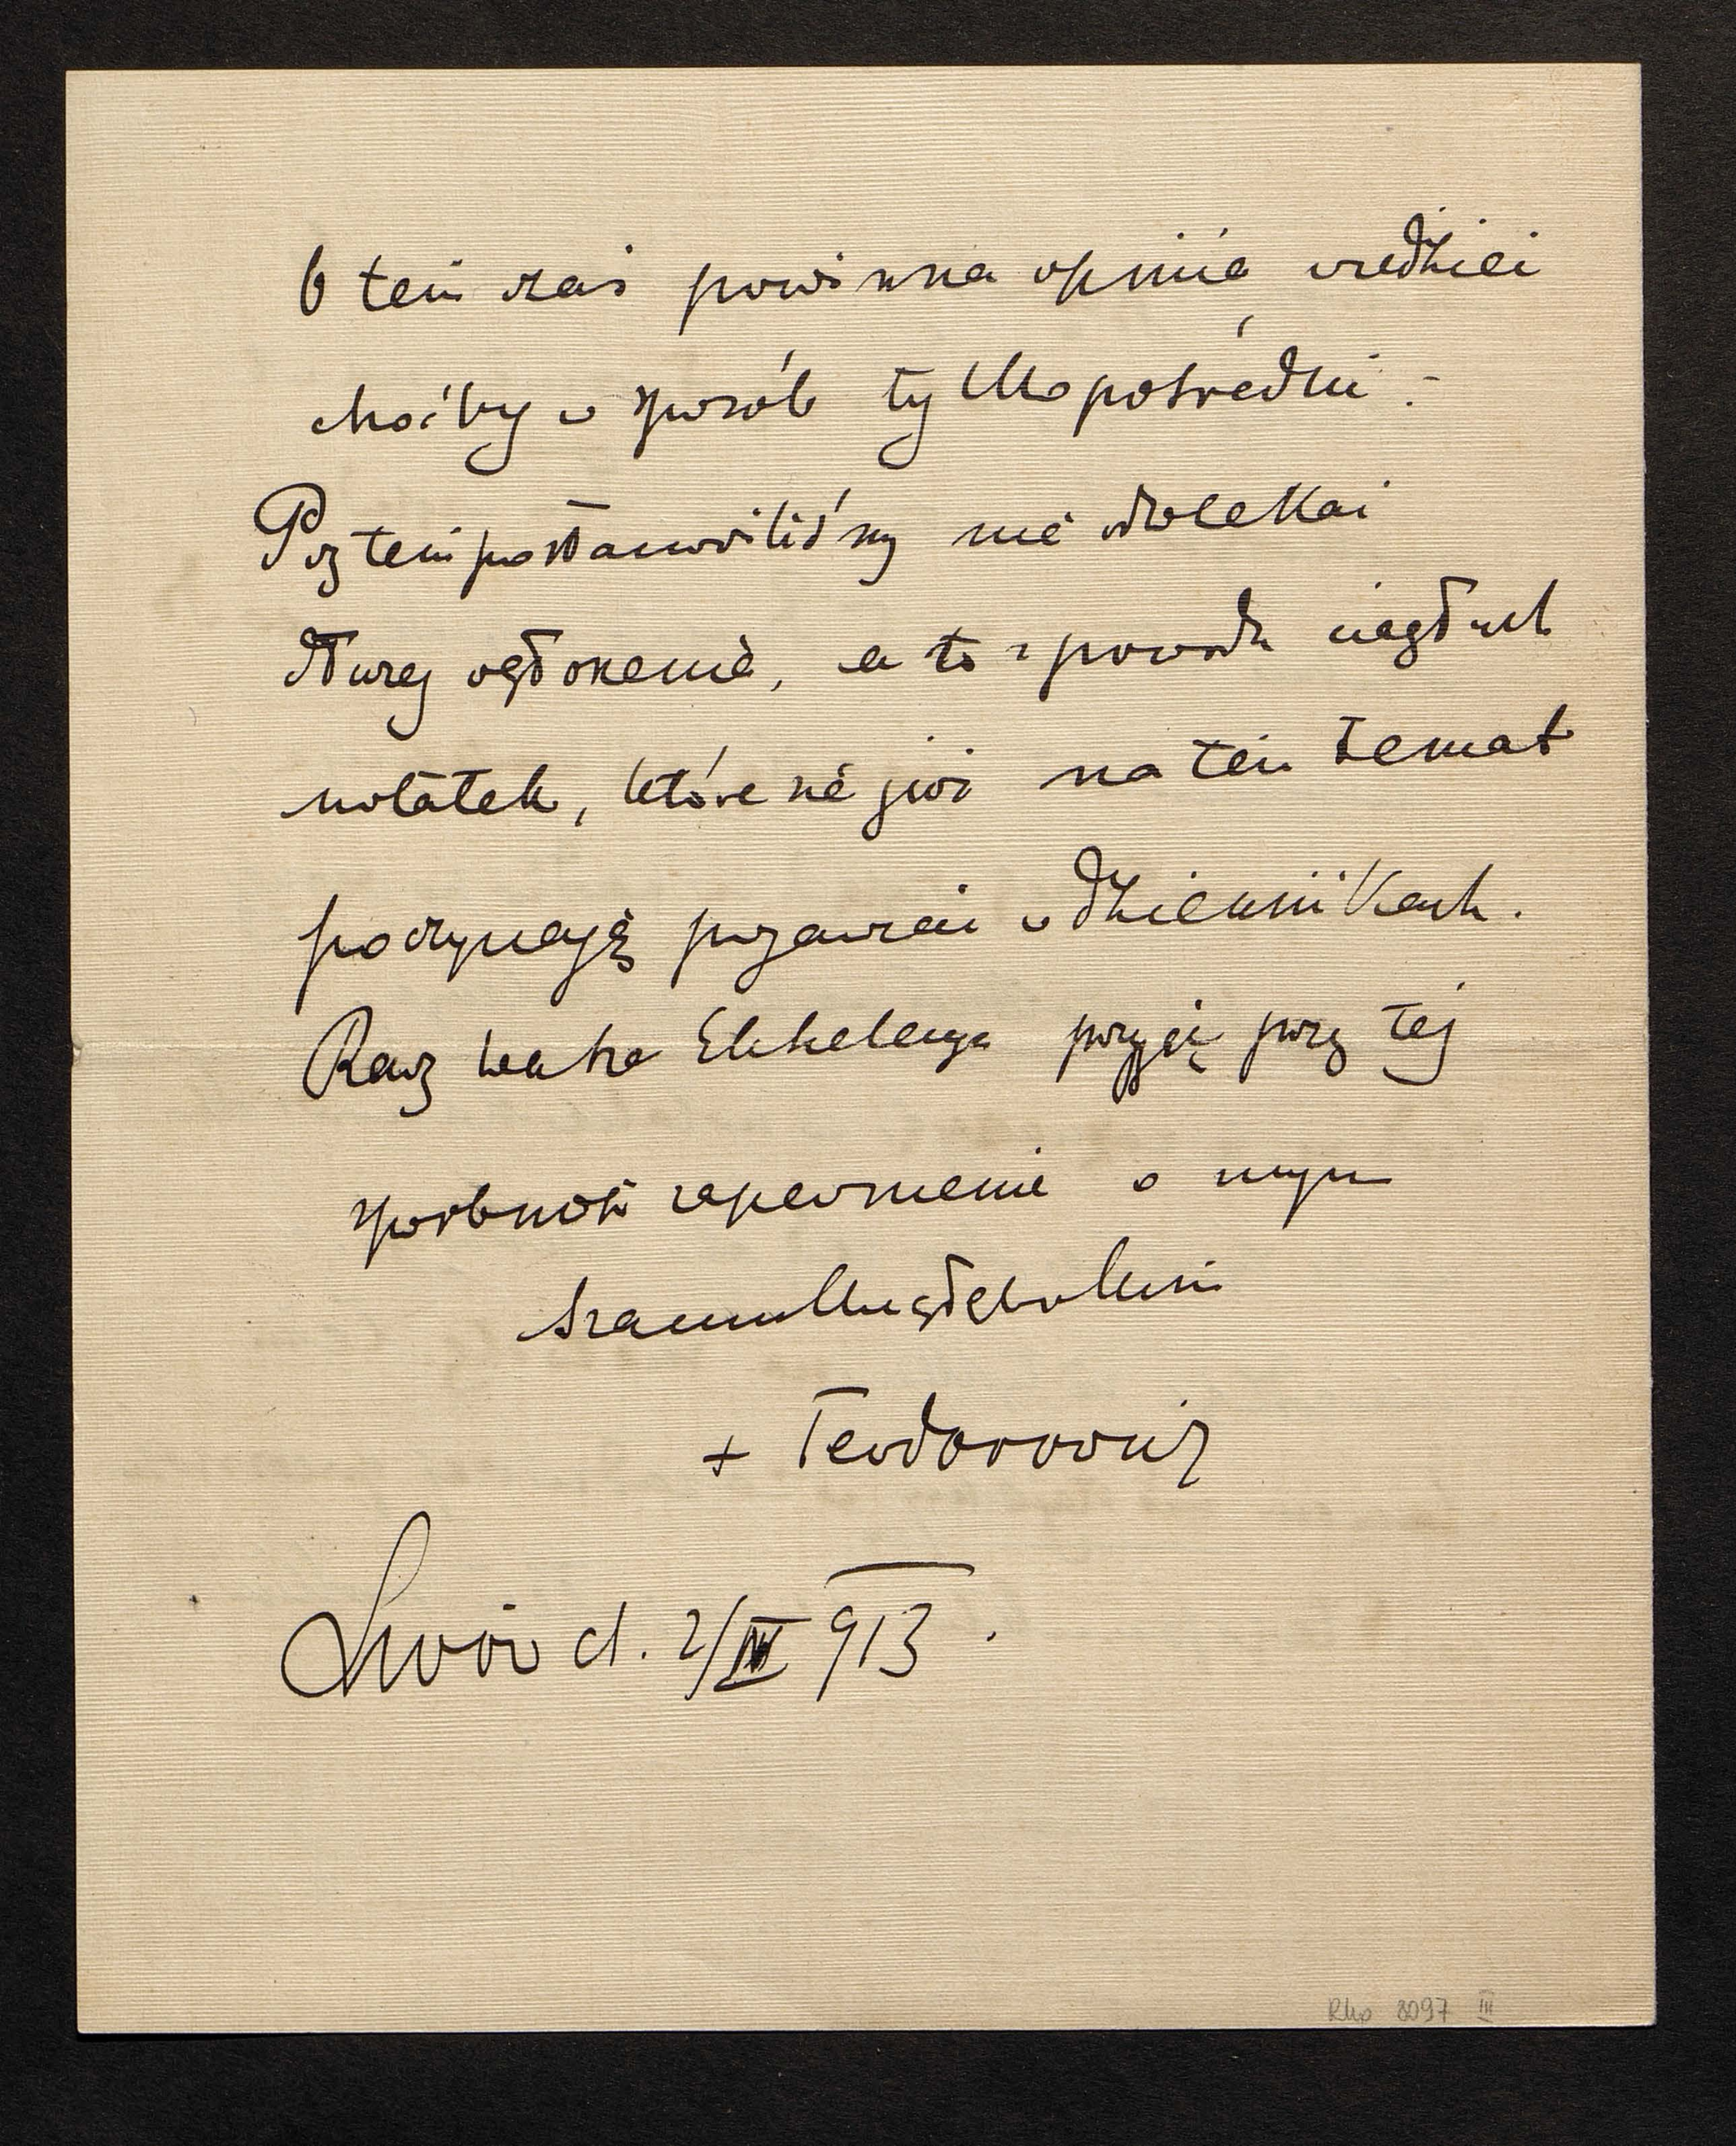 O tem zaś powinna opinia wiedzieć
choćby w sposób tylko pośredni. -
Przytem postanowiliśmy nie odwlekać
dłużej ogłoszenia, a to z powodu ciągłych
notatek, które się już na ten temat
poczynają pojawiać w dziennikach.
Racz Wasza Ekscelencya przyjąć przy tej
sposobności zapewnienie o mym
szacunku głębokim
+ Teodorowicz
Lwów d. 2/IV 913.
Rkp 8097 III